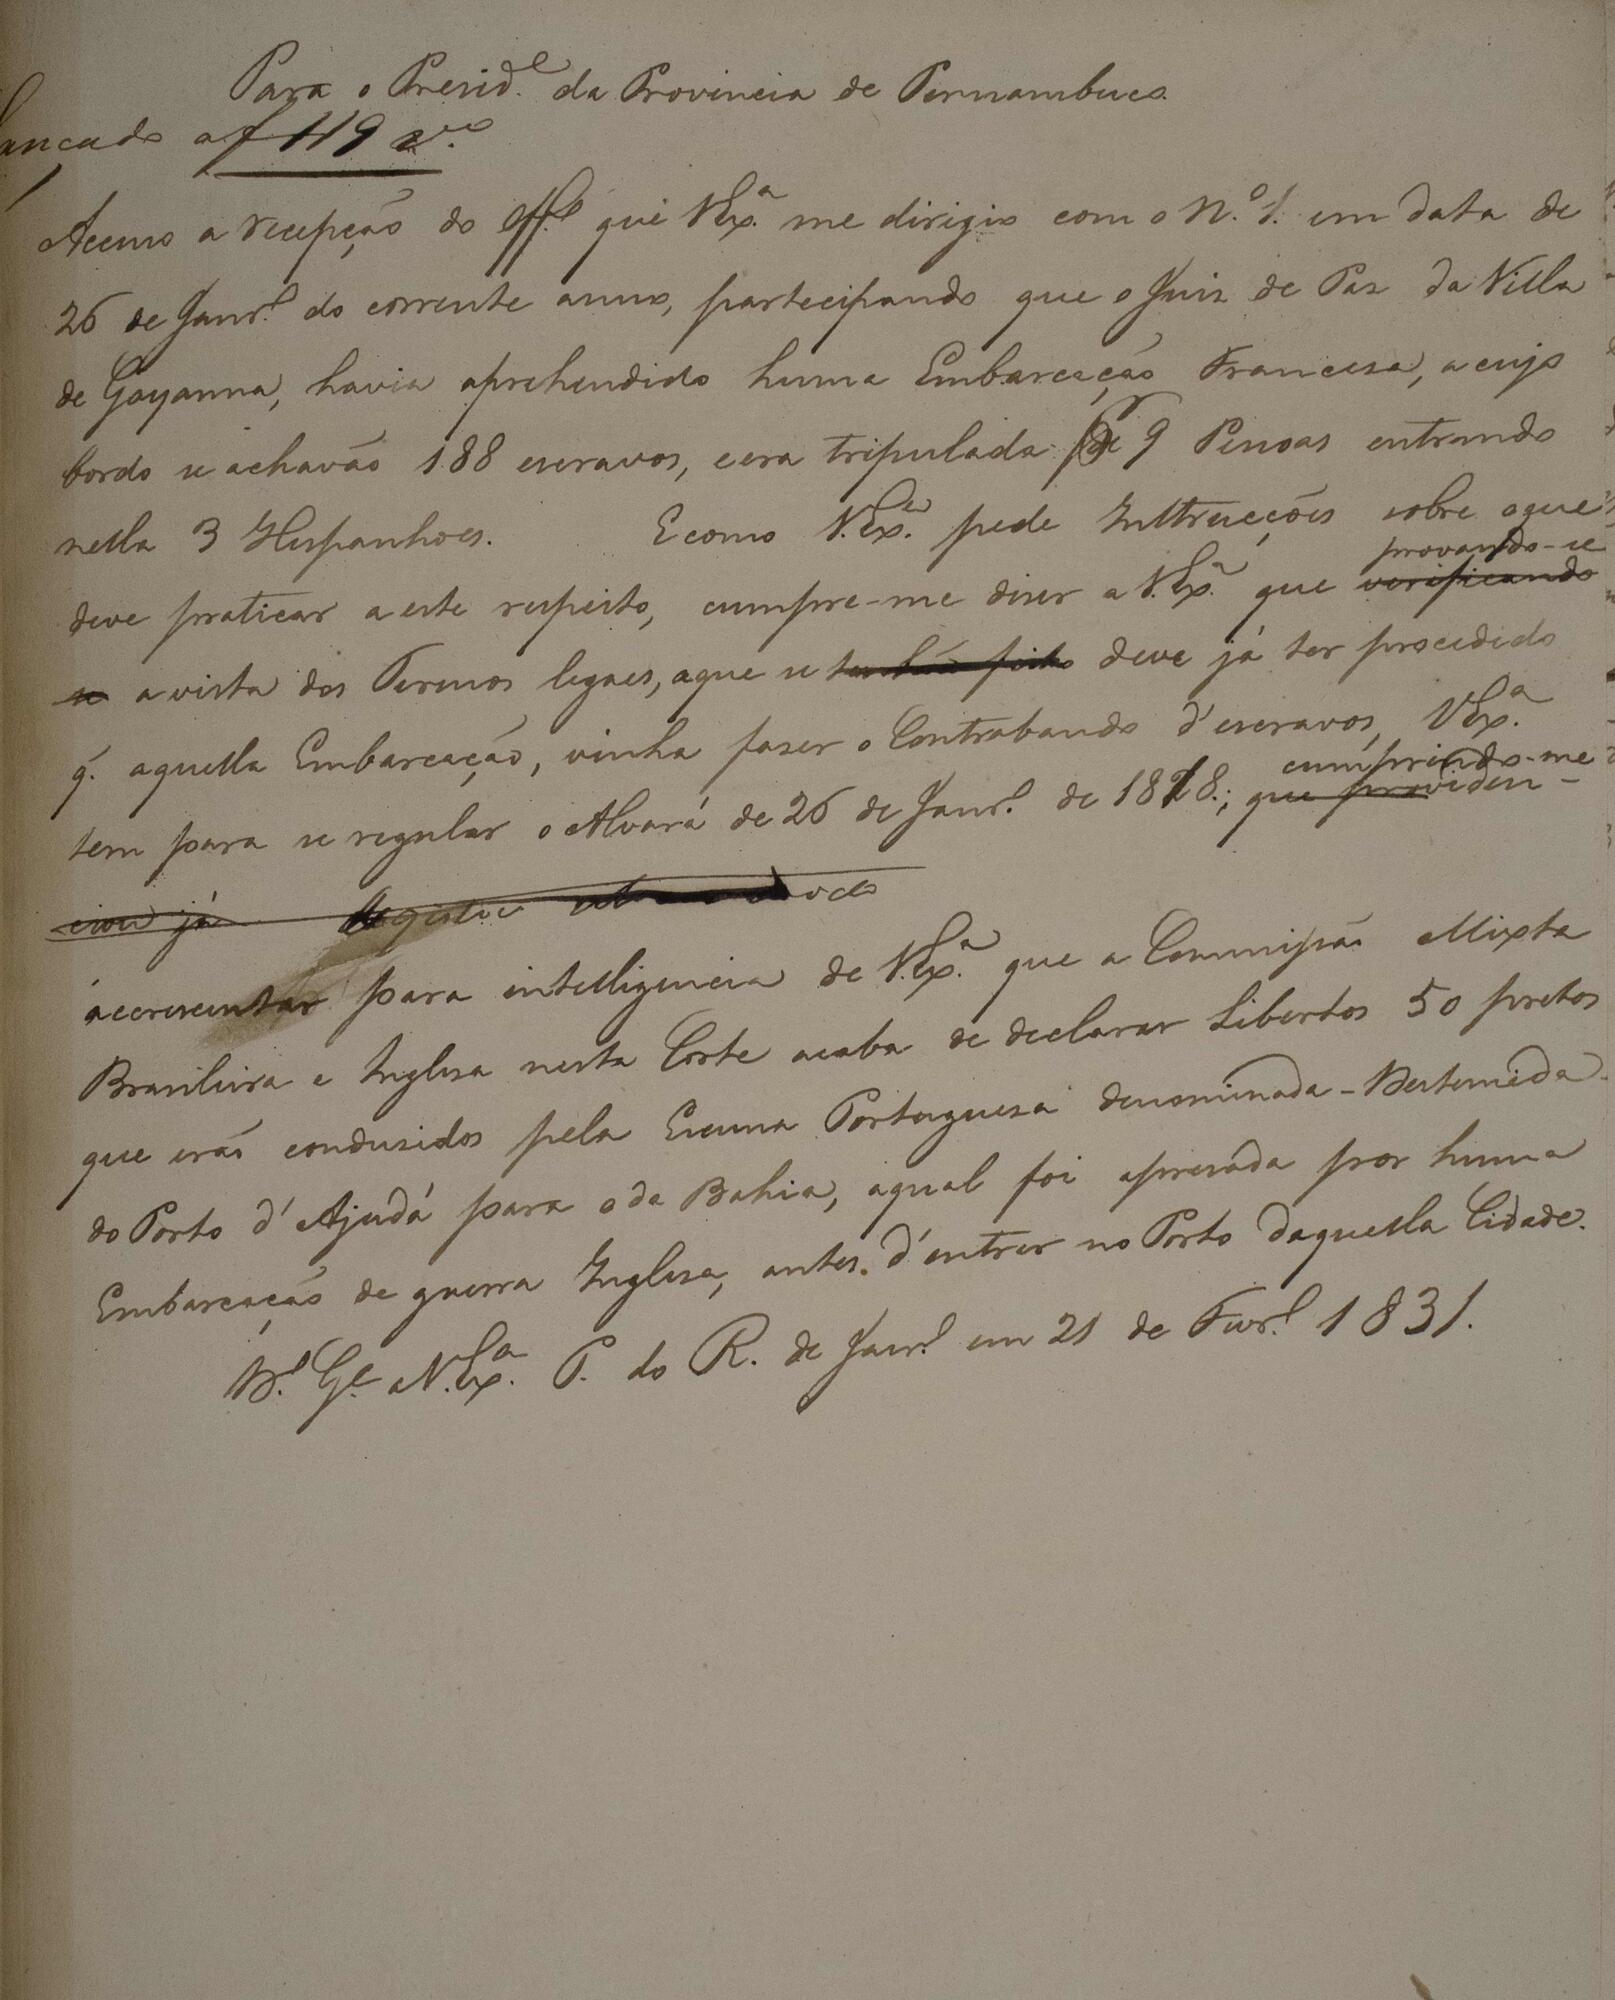 Para o Presid.e da Provincia de Pernambuco.
Lançado a f 119 v.o
Accuso a recepção do Off.o que V.Ex.a me dirigio com o N.o 1. em data de
26 de Janr.o do corrente anno, partecipando que o Juiz de Paz da Villa
de Goyanna, havia aprehendido huma Embarcação Francesa, a cujo
bordo se achavão 188 escravos, e era tripulada por 9 Pessoas entrando
nella 3 Hespanhoes. E como V.Ex.a pede Instrucções sobre o que
provando-se
deve praticar a este respeito, cumpre-me diser a V.Ex.a que verificando
se a vista dos Termos legaes, a que se tenhão feito deve já ter procedido
q. aquella Embarcação, vinha faser o Contrabando d'escravos, V.Ex.a
cumprindo-me
tem para se regular o Alvará de 26 de Janr.o de 1818.; que providen-
ciou já
accrescentar para intelligencia de V.Ex.a que a Commissão Mixta
Brasileira e Inglesa nesta Corte acaba de declarar Libertos 50 pretos
que erão condusidos pela Escuna Portuguesa denominada - Destemida -
do Porto d'Ajudá para o da Bahia, a qual foi apresada por huma
Embarcação de guerra Inglesa, antes d'entrar no Porto daquella Cidade.
D.s G.e a V.Ex.a P. do R. de Janr.o em 21 de Fevr.o 1831.